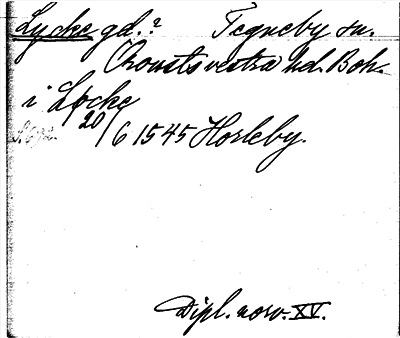 Lycke gd.? Tegneby sn.
Orousts västra hd. Boh.
i Løcke
20/6 1545 Horleby.
S. 692.
Dipl. norv. XV.